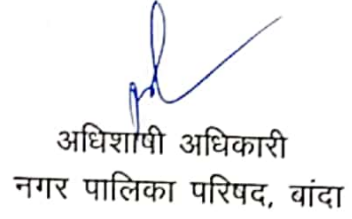 अधिशाषी अधिकारी
नगर पालिका परिषद, वांदा